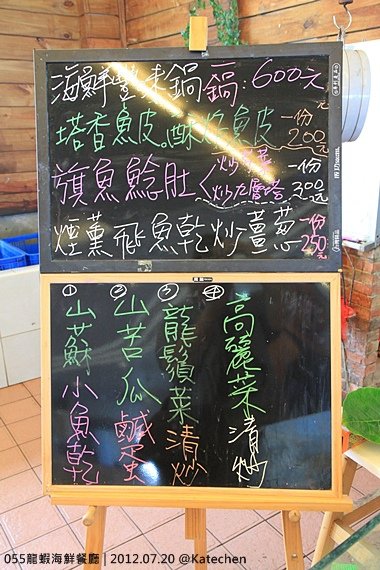 海鮮豐味鍋 一鍋:600元
塔香魚皮。酥炸魚皮 一份200元
旗魚鯰肚 炒 炒九層塔 一份300元
煙薰飛魚乾炒薑蔥 一份250元
① 山蘇小魚乾
② 山苦瓜鹹蛋
③ 龍鬚菜清炒
④ 高麗菜清炒
055龍蝦海鮮餐廳 | 2012.07.20 @Katechen